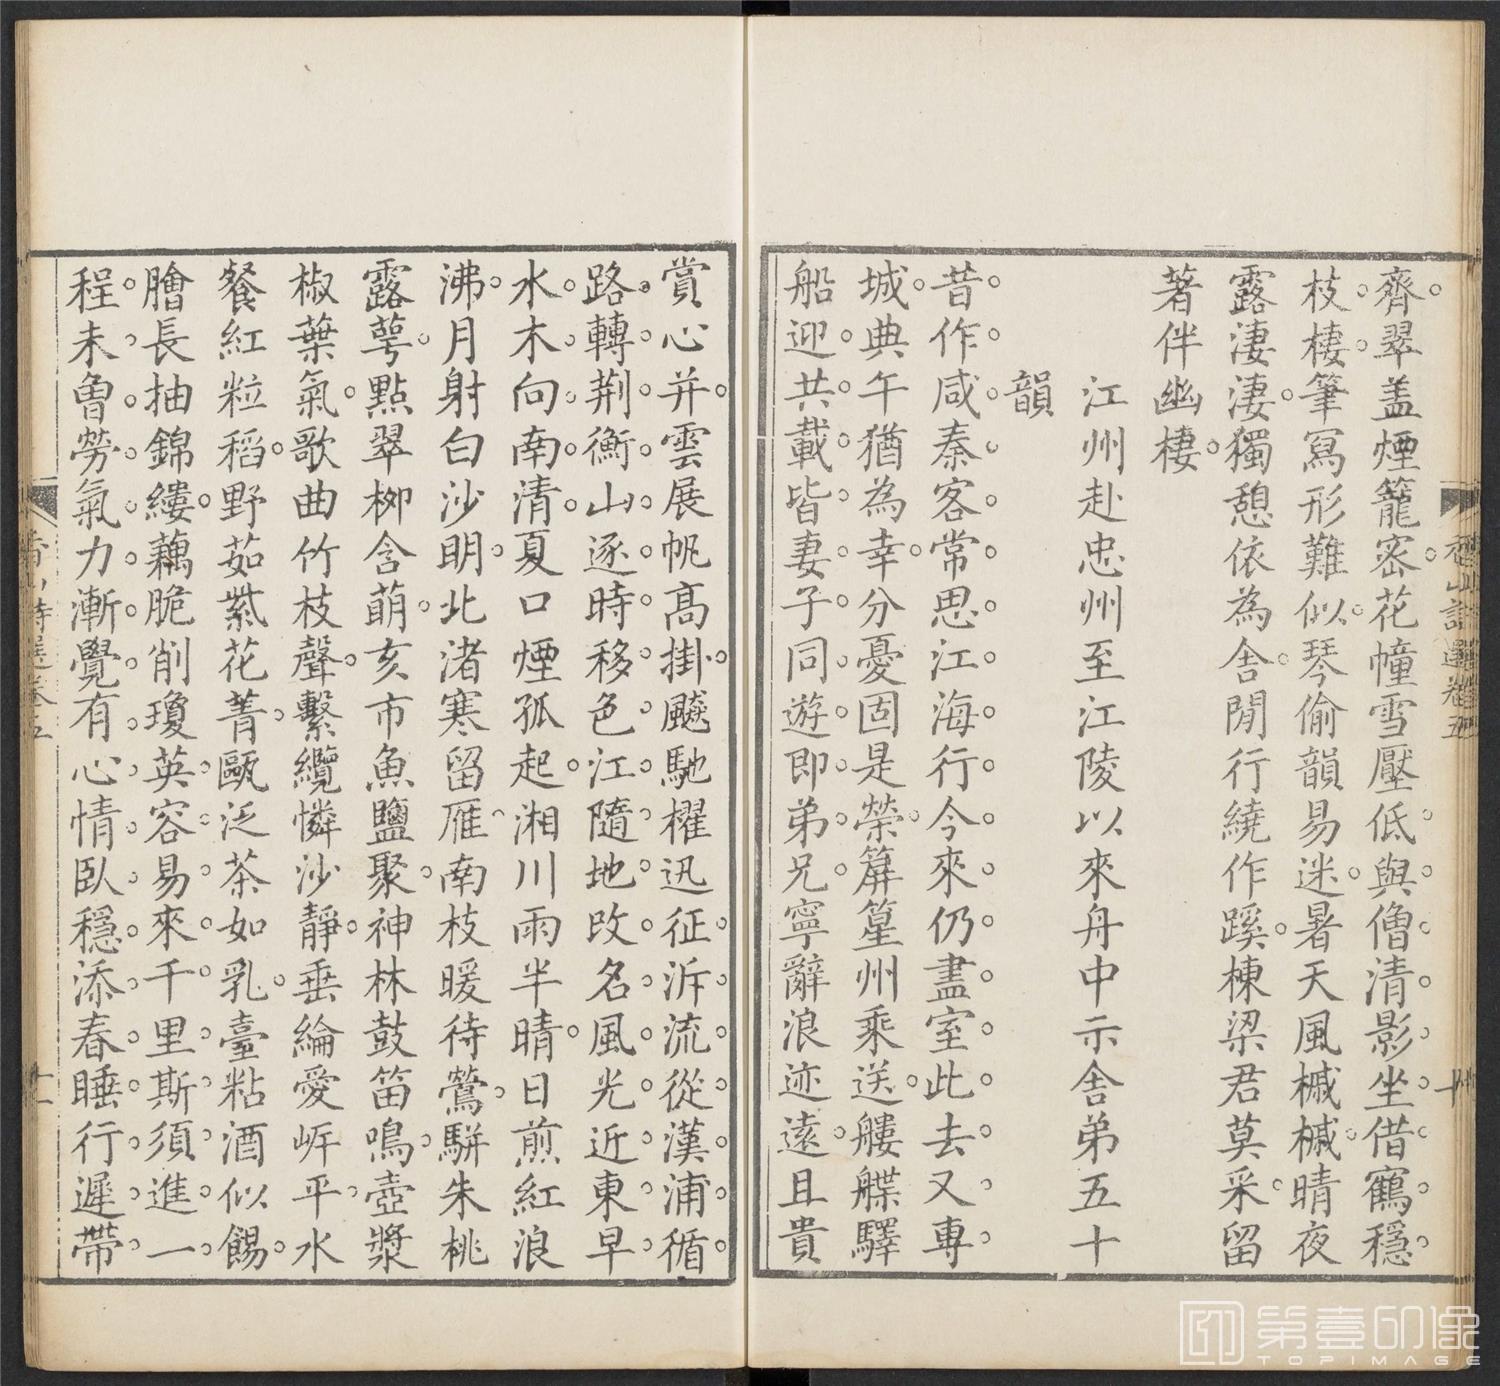 齊翠盖煙籠密花幢雪壓低與僧清影坐借鶴穩
枝棲筆寫形難似琴偷韻易迷暑天風槭槭晴夜
露淒淒獨憩依為舍閒行繞作蹊棟梁君莫采留
著伴幽棲
江州赴忠州至江陵以來舟中示舍弟五十
韻
昔作咸秦客常思江海行今來仍盡室此去又專
城典午猶為幸分憂固是榮篺篁州乘送艛艓驛
船迎共載皆妻子同遊即弟兄寧辭浪迹遠且貴
香山詩選卷五
十
賞心并雲展帆高掛飈馳櫂迅征泝流從漢浦循
路轉荆衡山逐時移色江隨地改名風光近東早
水木向南清夏口煙孤起湘川雨半晴日煎紅浪
沸月射白沙明北渚寒留雁南枝暖待鶯駢朱桃
露萼點翠柳含萌亥市魚鹽聚神林鼓笛鳴壺漿
椒葉氣歌曲竹枝聲繫纜憐沙靜垂綸愛岸平水
餐紅粒稻野茹紫花菁甌泛茶如乳臺粘酒似餳
膾長抽錦縷藕脆削瓊英容易來千里斯須進一
程未曾勞氣力漸覺有心情臥穩添春睡行遲帶
香山詩選卷五
十一
第壹印像
TOPIMAGE